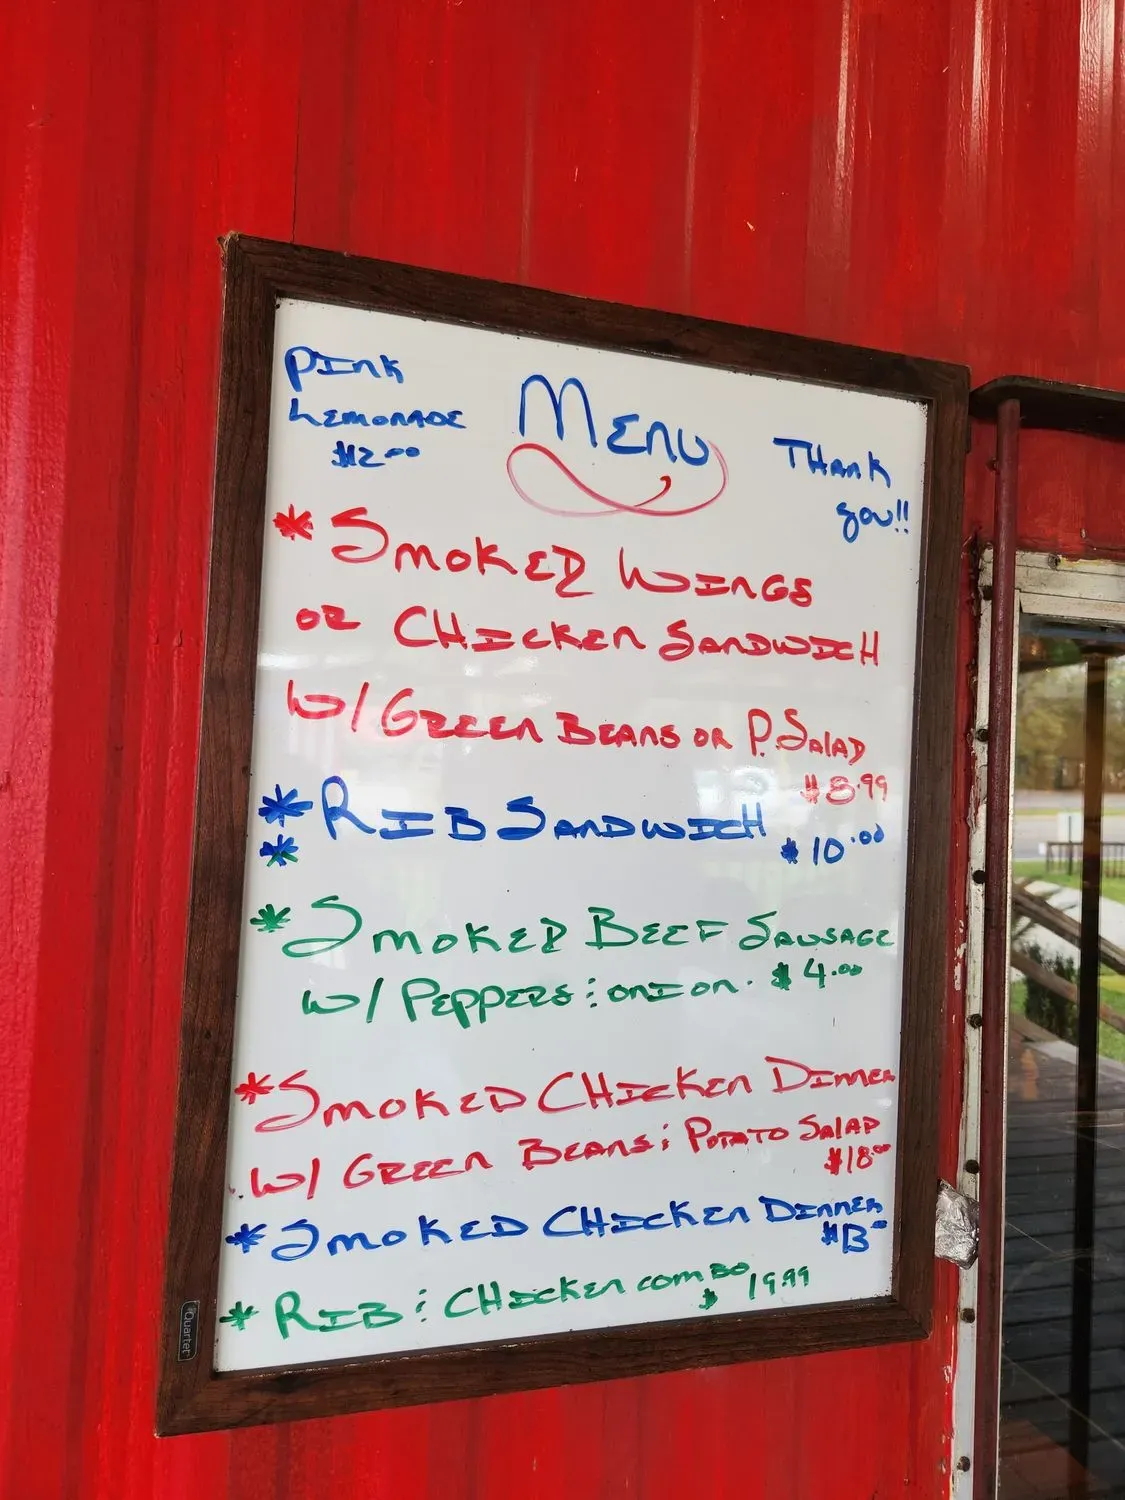 Pink
Lemonade
$2.00
Menu
Thank
you!!
* Smoked Wings
or Chicken Sandwich
w/ Green Beans or P. Salad
$8.99
* Rib Sandwich
$10.00
*
* Smoked Beef Sausage
w/ Peppers : onion. $4.00
* Smoked Chicken Dinner
w/ Green Beans : Potato Salad
$18.00
* Smoked Chicken Dinner
$13
* Rib : Chicken combo
$19.99
Quartet